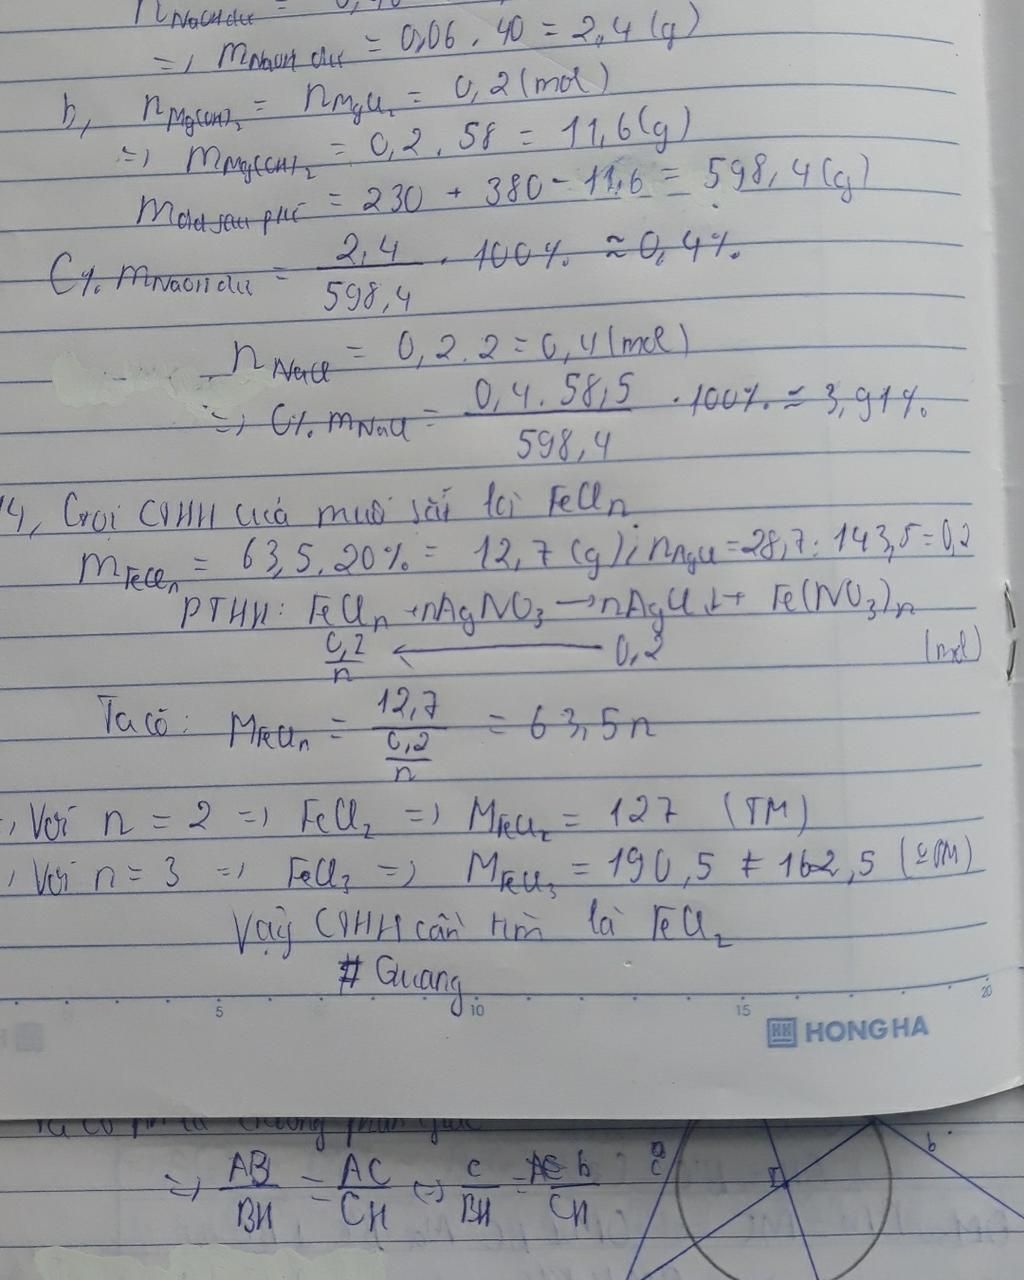 ⇒ mNaOH dư = 0,06 . 40 = 2,4 (g)
b, nMg(OH)₂ = nMgCl₂ = 0,2 (mol)
⇒ mMg(OH)₂ = 0,2 . 58 = 11,6 (g)
mdd sau pứ = 230 + 380 - 11,6 = 598,4 (g)
C%. mNaOH dư = 2,4 / 598,4 . 100% ≈ 0,4%.
nNaCl = 0,2.2 = 0,4 (mol)
⇒ C%. mNaCl = 0,4.58,5 / 598,4 . 100% = 3,91%.
14, Gọi CTHH của muối sắt là FeClₙ
mFeClₙ = 63,5.20% = 12,7 (g); nAgCl = 28,7 : 143,5 = 0,2
PTHH: FeClₙ + nAgNO₃ → nAgCl↓ + Fe(NO₃)ₙ
0,2/n ← 0,2 (mol)
Ta có: MFeClₙ = 12,7 / (0,2/n) = 63,5n
, Với n = 2 ⇒ FeCl₂ ⇒ MFeCl₂ = 127 (TM)
, Với n = 3 ⇒ FeCl₃ ⇒ MFeCl₃ = 190,5 ≠ 162,5
Vậy CTHH cần tìm là FeCl₂
# Quang
5 10 15 20
HONG HA
⇒ AB/BH = AC/CH ⇔ c/BH = b/CH
c b I